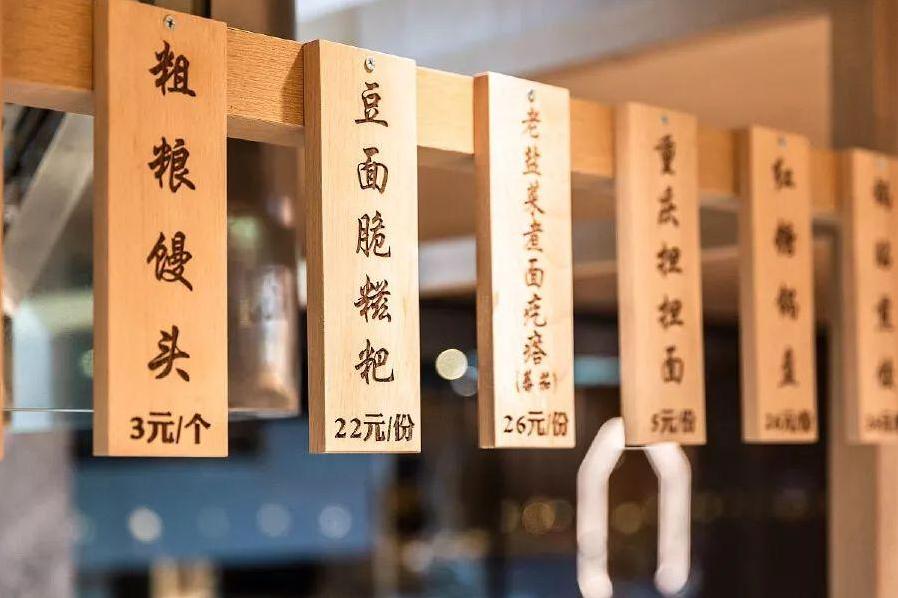 粗粮馒头
3元/个
豆面脆糍粑
22元/份
老盐菜煮面疙瘩
26元/份
重庆担担面
5元/份
红糖锅盔